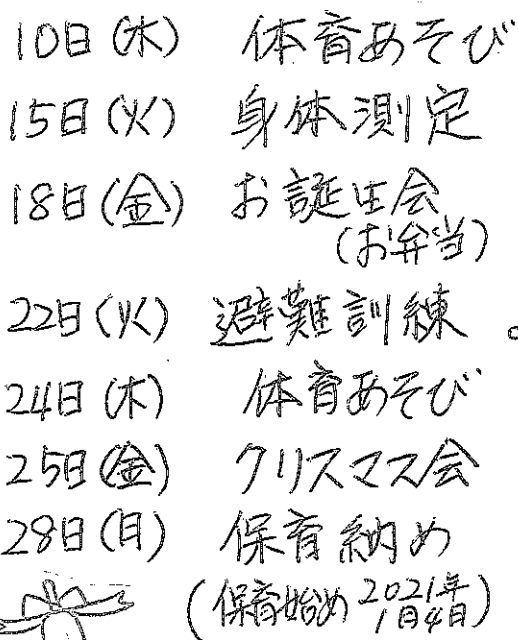 10日(木) 体育あそび
15日(火) 身体測定
18日(金) お誕生会
(お弁当)
22日(火) 避難訓練。
24日(木) 体育あそび
25日(金) クリスマス会
28日(月) 保育納め
(保育始め 2021年
1月4日)